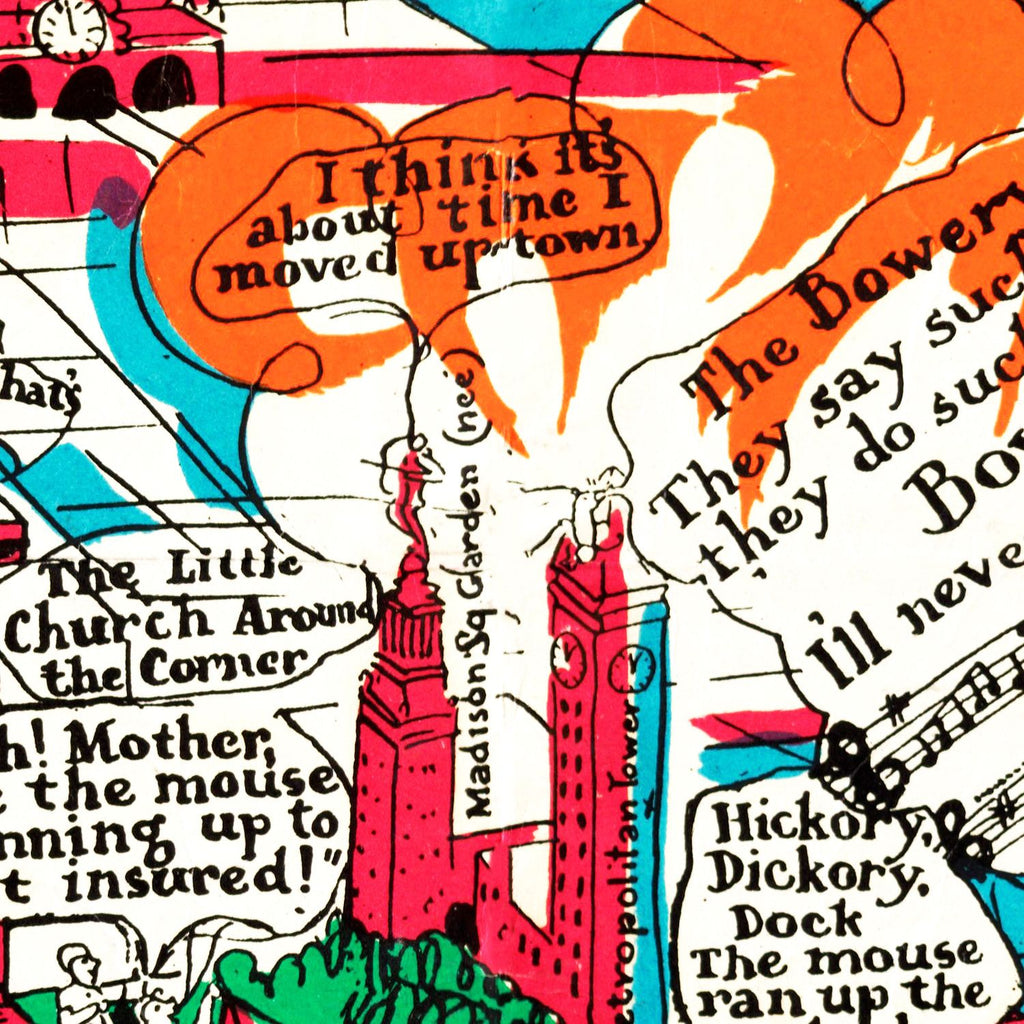 I think it's
about time I
moved up-town.
The Bowery
They say such
they do such
Bo
I'll never
hat's
Madison Sq Garden (neé)
The Little
Church Around
the Corner
h! Mother,
the mouse
nning up to
t insured!"
etropolitan Tower
Hickory,
Dickory,
Dock
The mouse
ran up the